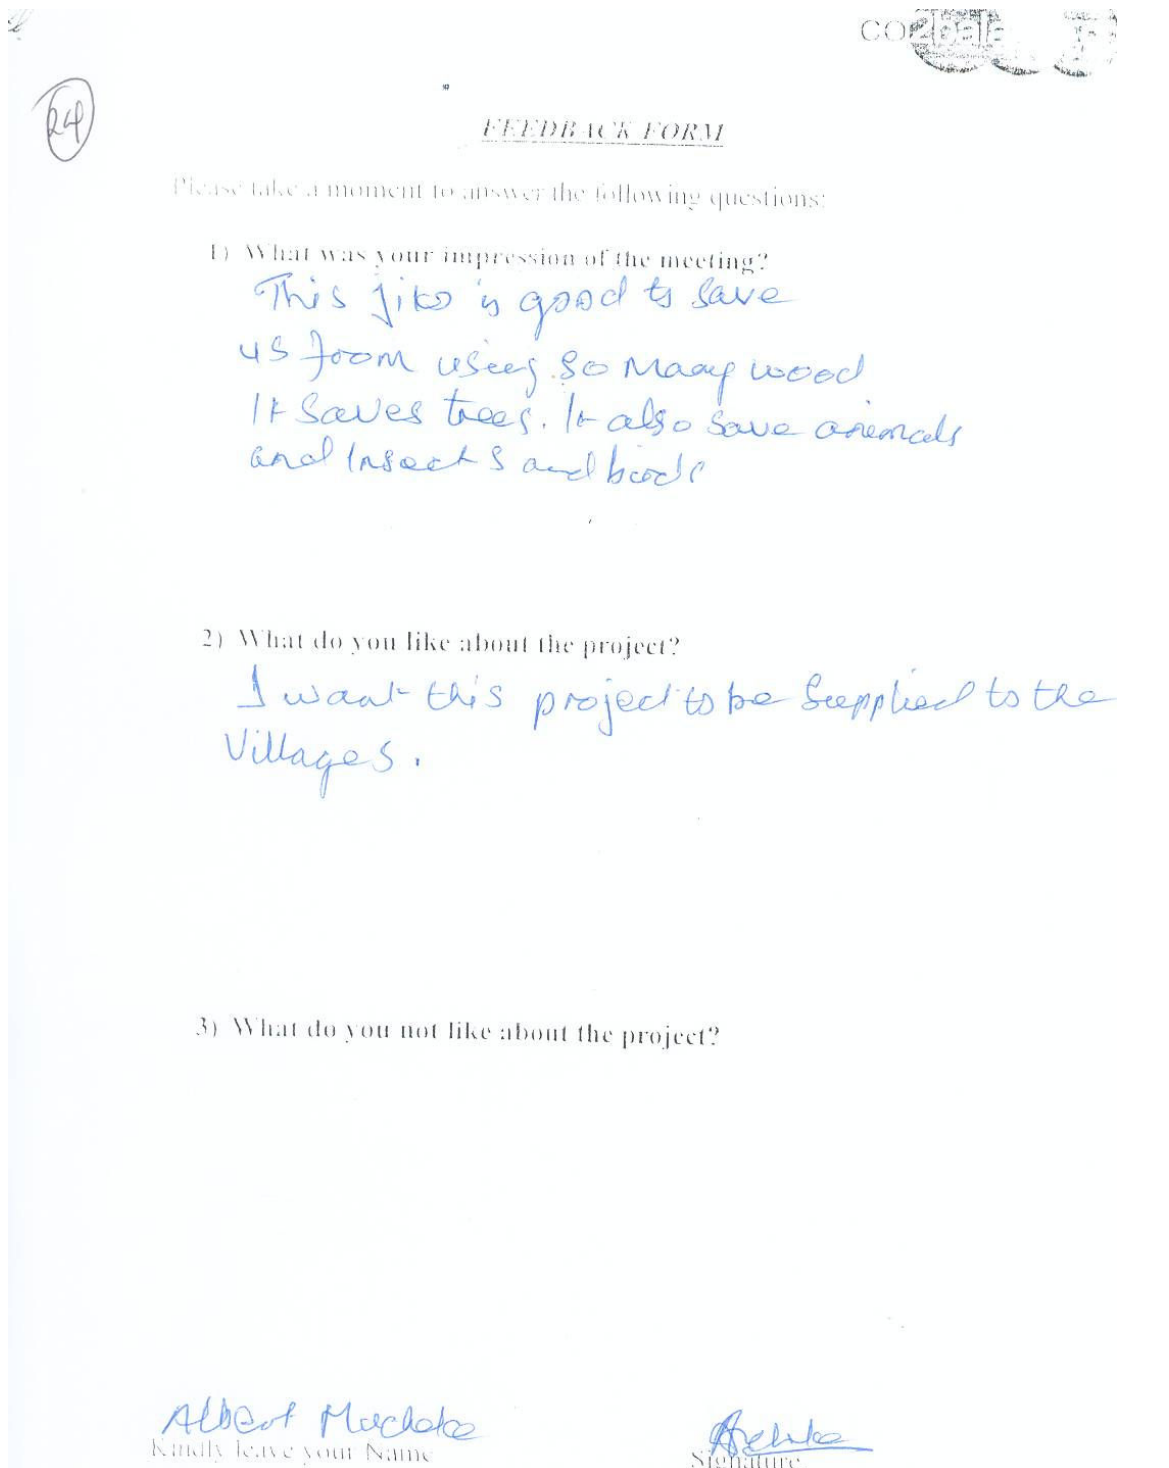 24
FEEDBACK FORM
Please take a moment to answer the following questions:
1) What was your impression of the meeting?
This jiko is good to save
us from using so many wood
It saves trees. It also save animals
and Insects and birds
2) What do you like about the project?
I want this project to be supplied to the
Villages.
3) What do you not like about the project?
Albert
Kindly leave your Name
Signature